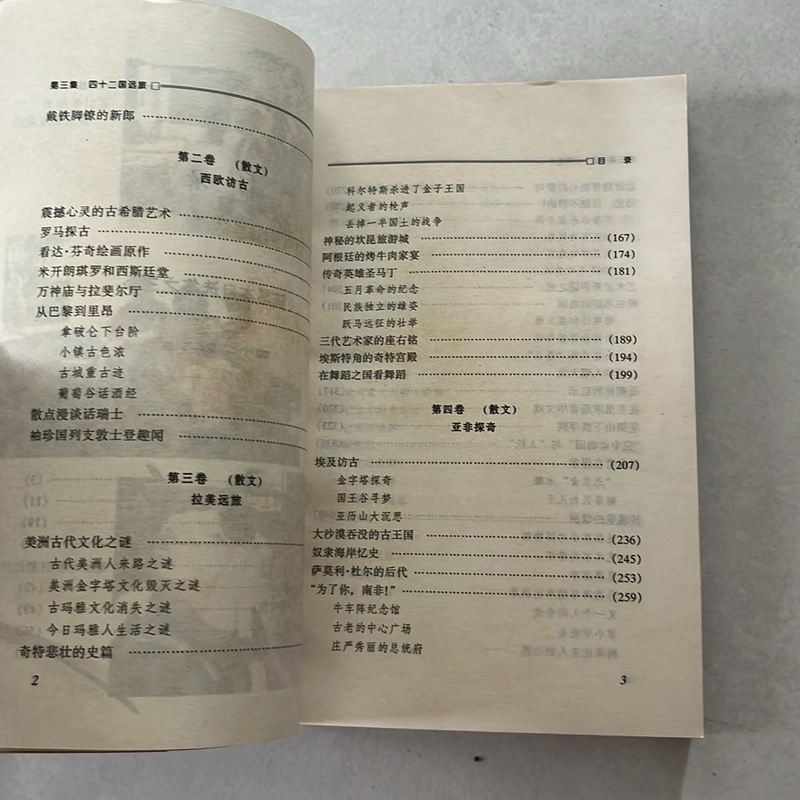 第三集 四十二国远旅
戴铁脚镣的新郎
第二卷 (散文)
西欧访古
震撼心灵的古希腊艺术
罗马探古
看达·芬奇绘画原作
米开朗琪罗和西斯廷堂
万神庙与拉斐尔厅
从巴黎到里昂
拿破仑下台阶
小镇古色浓
古城重古迹
葡萄谷话酒经
散点漫谈话瑞士
袖珍国列支敦士登趣闻
第三卷 (散文)
拉美远旅
美洲古代文化之谜
古代美洲人来路之谜
美洲金字塔文化毁灭之谜
古玛雅文化消失之谜
今日玛雅人生活之谜
奇特悲壮的史篇
2
目 录
科尔特斯杀进了金子王国
起义者的枪声
丢掉一半国土的战争
神秘的坎昆旅游城 (167)
阿根廷的烤牛肉家宴 (174)
传奇英雄圣马丁 (181)
五月革命的纪念
民族独立的雄姿
跃马远征的壮举
三代艺术家的座右铭 (189)
埃斯特角的奇特宫殿 (194)
在舞蹈之国看舞蹈 (199)
第四卷 (散文)
亚非探奇
埃及访古 (207)
金字塔探奇
国王谷寻梦
亚历山大沉思
大沙漠吞没的古王国 (236)
奴隶海岸忆史 (245)
萨莫利·杜尔的后代 (253)
“为了你，南非!” (259)
牛车阵纪念馆
古老的中心广场
庄严秀丽的总统府
3